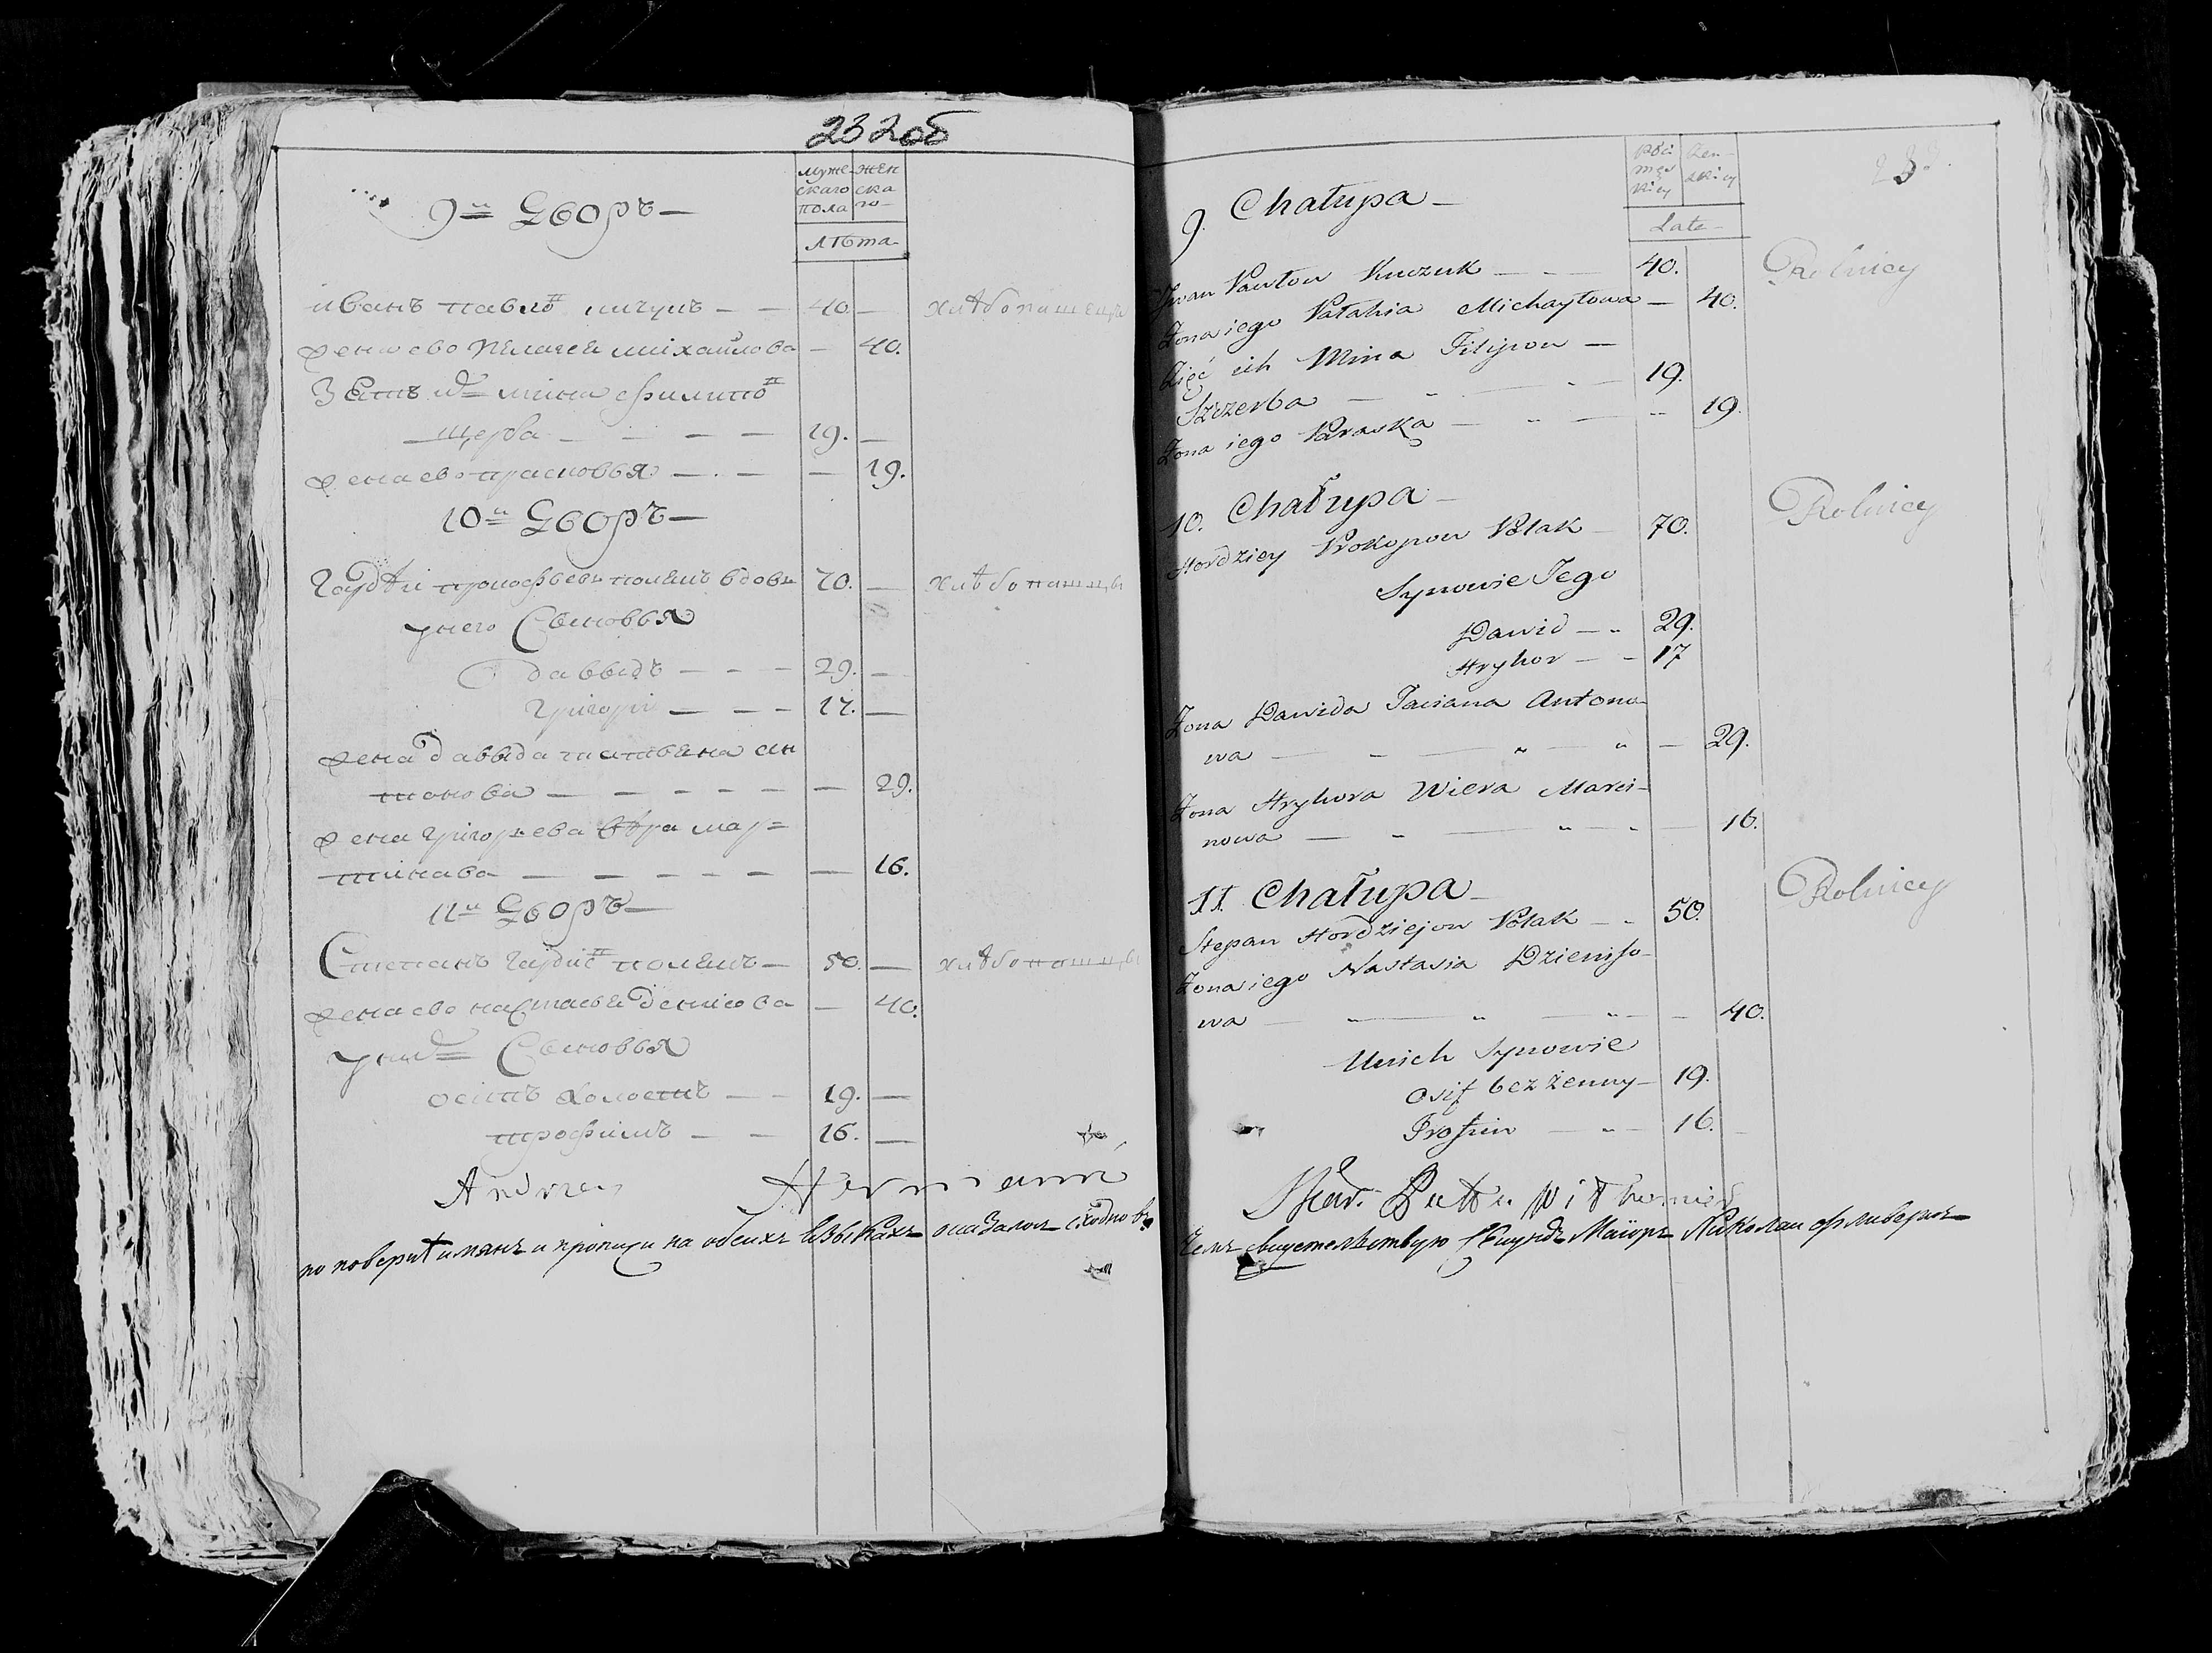 232об
муже
скаго
пола
жен
ска
го
лѣта
9й Дворъ
иванъ павло въ кичукъ 40
жена ево пелагея михайлова 40.
Зять их мина филипо въ
щерба 19.
жена ево прасковья 19.
хлѣбопашецъ
10й Дворъ
гордѣй прокофьевъ полякъ вдовъ 70.
хлѣбопашцы
у него Сыновья
давыдъ 29.
григорей 17.
жена давыда татьяна ан
тонова 29.
жена григорьева вѣра мар=
тинава 16.
11й Дворъ
Степанъ гордие въ полякъ 50.
хлѣбопашцы
жена ево настасья денисова 40.
у них Сыновья
осипъ холостъ 19.
трофимъ 16.
Andrzey Hermann
по поверке имянъ и прописи на обеихъ языкахъ оказалось сходно в
233.
płci
męs
kiey
Żeń-
skiey
Lata
9. Chałupa
Jwan Pawłow Kuczuk 40.
Rolnicy
Żona iego Pałahia Michayłowa 40.
Zięć ich Mina Filipow
Szczerba 19.
Żona iego Paraska 19.
10. Chałupa
Rolnicy
Hordziey Prokopow Polak 70.
Synowie Jego
Dawid 29.
Hryhor 17
Żona Dawida Taciana Antono-
wa 29.
Żona Hryhora Wiera Marci-
nowa 16.
11. Chałupa
Rolnicy
Stepan Hordziejow Polak 50.
Żona iego Nastasia Dzieniso-
wa 40.
Unich Synowie
Osif bez żenny 19.
Trofim 16.
чемъ свидетельствую Секундъ Маіоръ Николаи